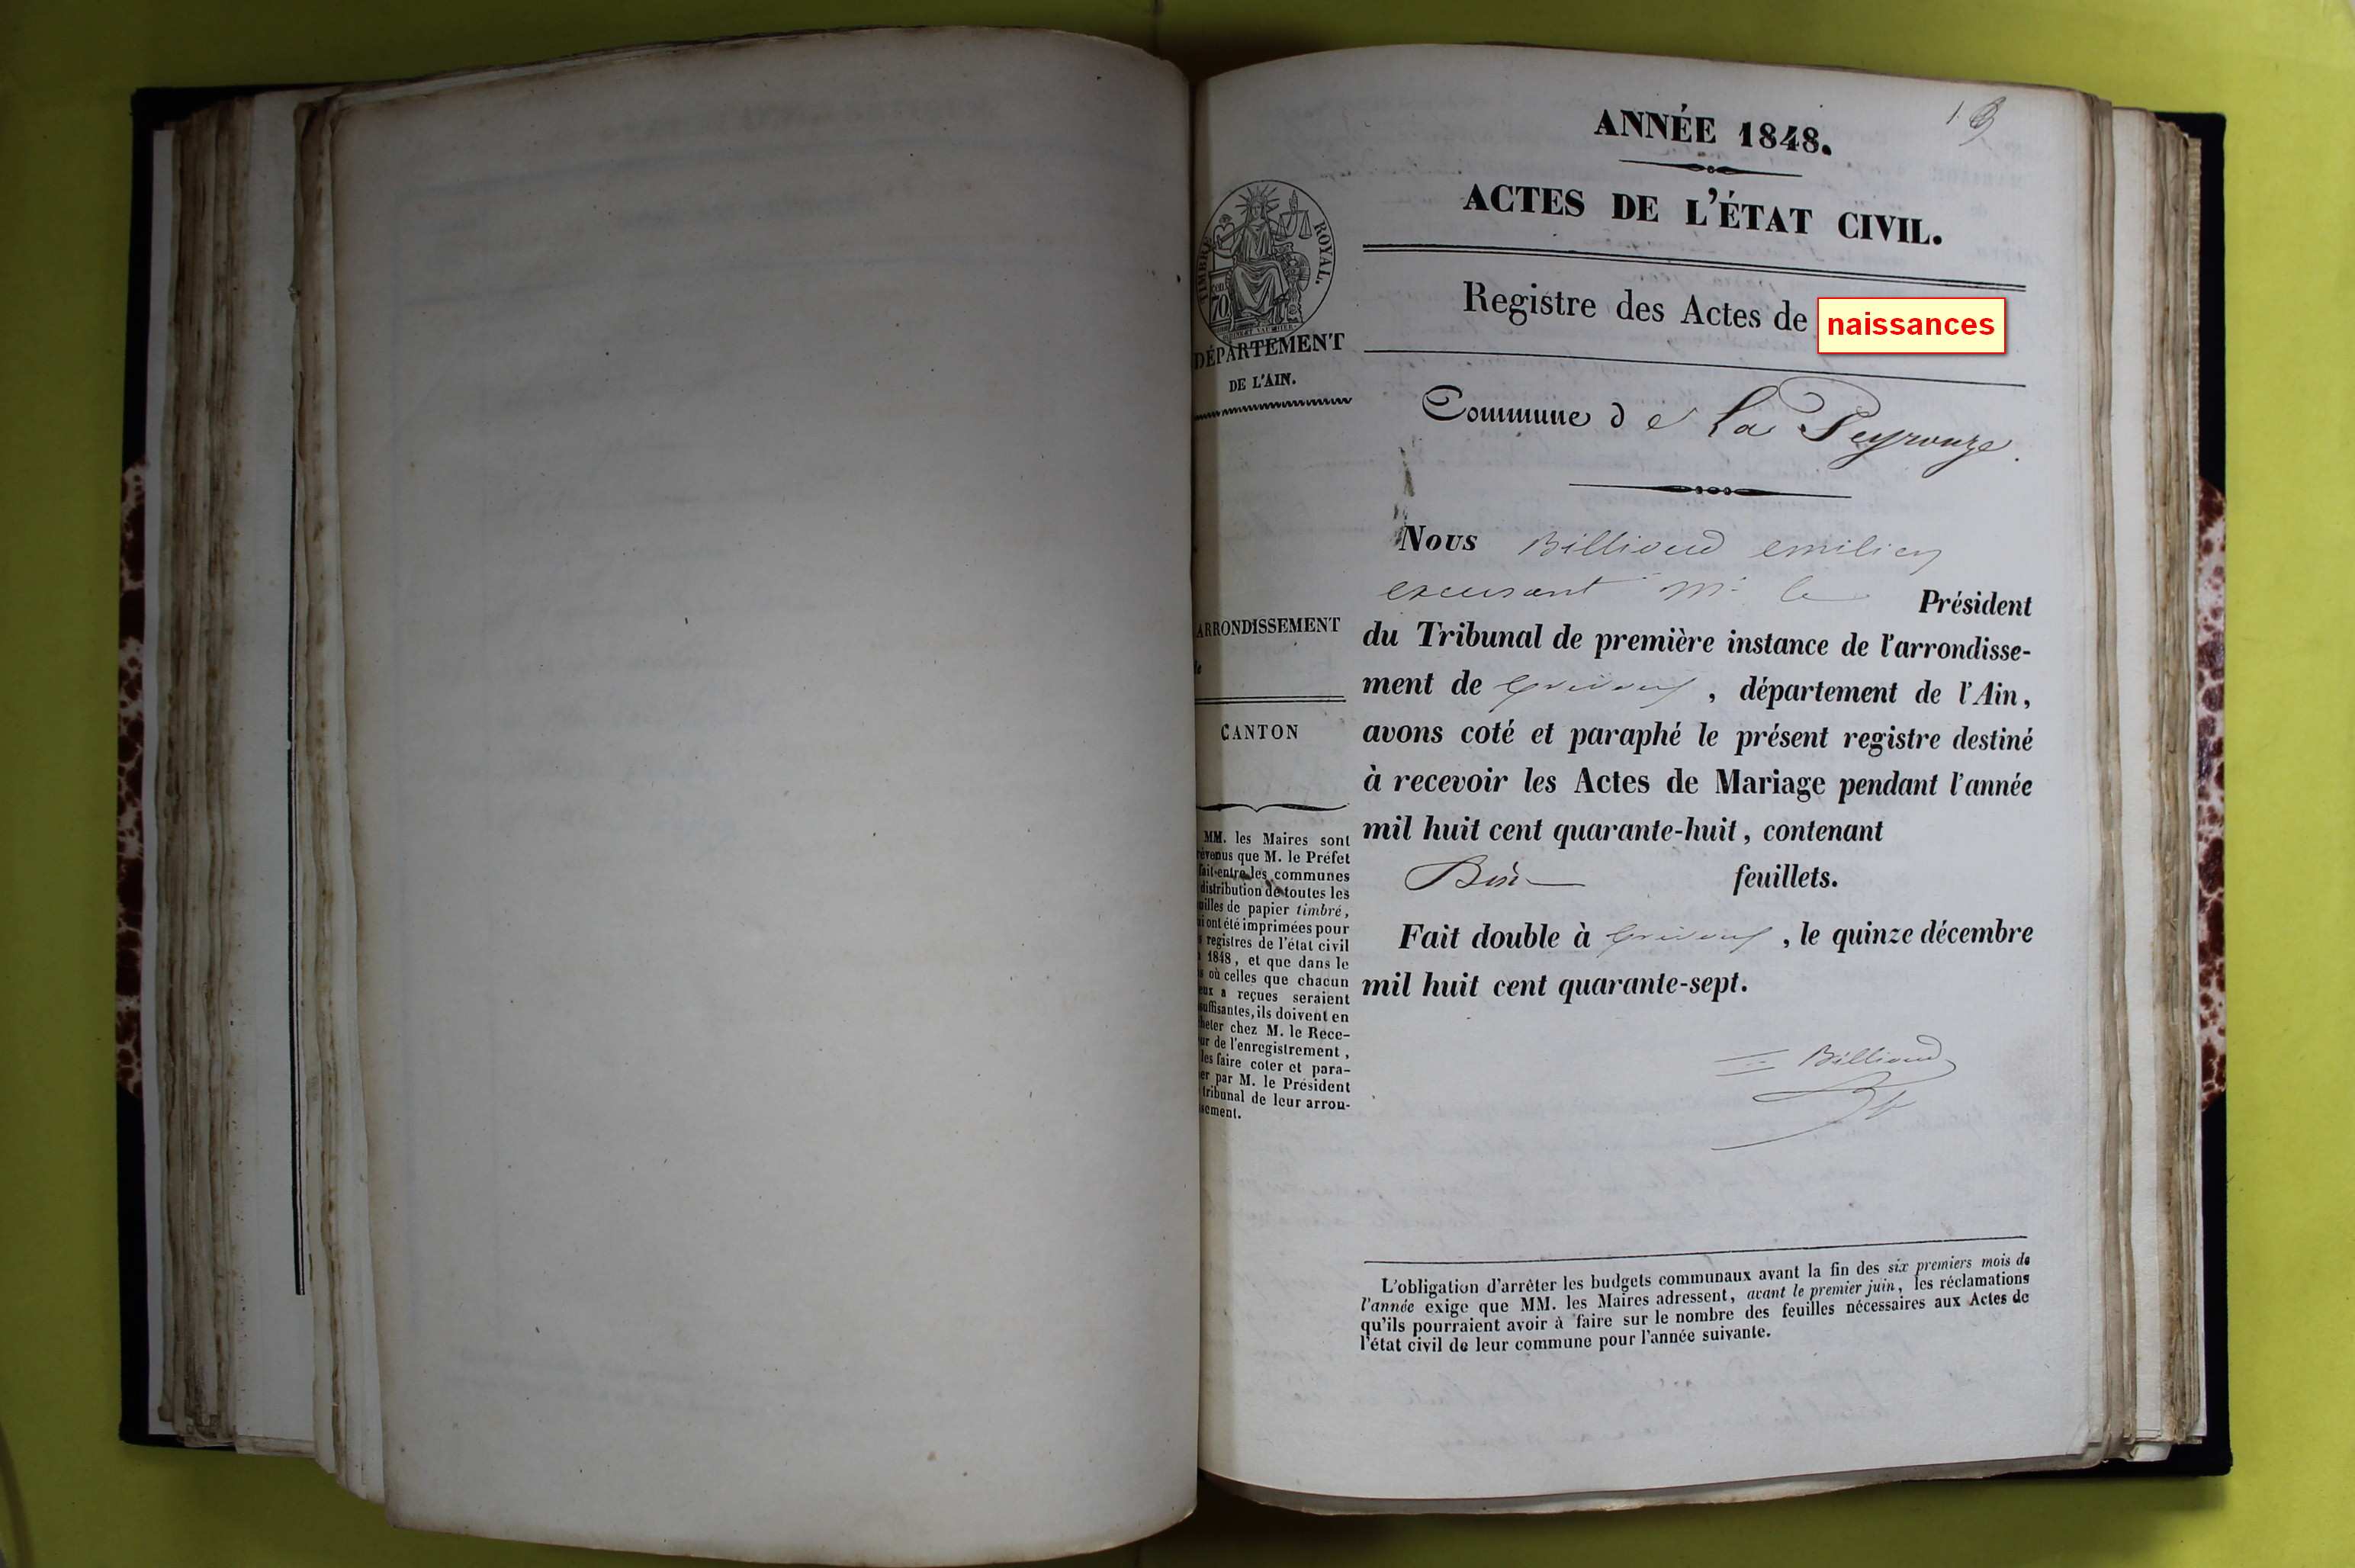 1.
ANNÉE 1848.
ACTES DE L'ÉTAT CIVIL.
TIMBRE ROYAL.
70
Registre des Actes de naissances
DÉPARTEMENT
DE L'AIN.
Commune de La Peyrouze.
Nous Billioud emilien
excusant Mr le Président
ARRONDISSEMENT
du Tribunal de première instance de l'arrondisse-
ment de Trévoux, département de l'Ain,
CANTON
avons coté et paraphé le présent registre destiné
à recevoir les Actes de Mariage pendant l'année
mil huit cent quarante-huit, contenant
feuillets.
Fait double à Trévoux, le quinze décembre
mil huit cent quarante-sept.
Billioud
MM. les Maires sont
évenus que M. le Préfet
fait entre les communes
distribution de toutes les
uilles de papier timbré,
i ont été imprimées pour
s registres de l'état civil
1848, et que dans le
s où celles que chacun
eux a reçues seraient
suffisantes, ils doivent en
heter chez M. le Rece-
ur de l'enregistrement,
les faire coter et para-
er par M. le Président
tribunal de leur arron-
sement.
L'obligation d'arrêter les budgets communaux avant la fin des six premiers mois de
l'année exige que MM. les Maires adressent, avant le premier juin, les réclamations
qu'ils pourraient avoir à faire sur le nombre des feuilles nécessaires aux Actes de
l'état civil de leur commune pour l'année suivante.